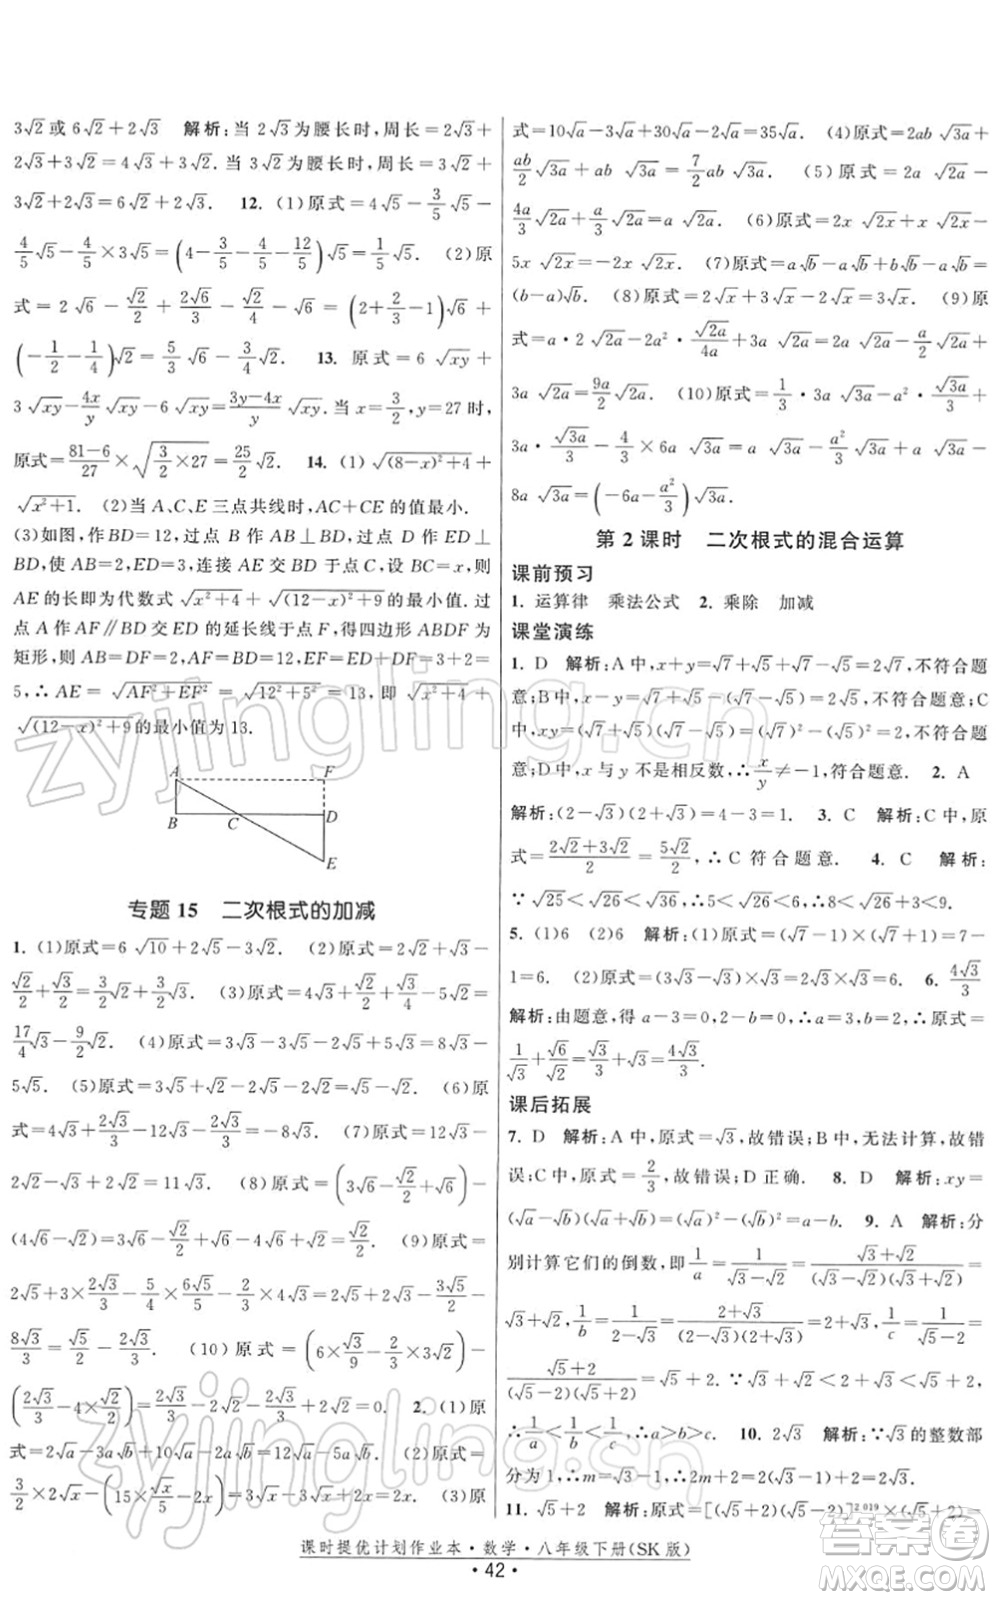 3√2或6√2+2√3 解析:当2√3为腰长时,周长=2√3+
2√3+3√2=4√3+3√2.当3√2为腰长时,周长=3√2+
3√2+2√3=6√2+2√3. 12. (1)原式=4√5-3/5√5-
4/5√5-4/5×3√5=(4-3/5-4/5-12/5)√5=1/5√5. (2)原
式=2√3-√2/2+2√6/3·1/√2-√3-√2/4=(2+2/3-1)√3+
(-1/2-1/4)√2=5/3√3-3/4√2. 13. 原式=6√xy+
3√xy-4x/y√xy-6√xy=(3y-4x)/y√xy.当x=3/2,y=27时,
原式=(81-6)/27×√(3/2×27)=25/2√2. 14. (1)√((8-x)²+4)+
√(x²+1). (2)当A、C、E三点共线时,AC+CE的值最小.
(3)如图,作BD=12,过点B作AB⊥BD,过点D作ED⊥
BD,使AB=2,ED=3,连接AE交BD于点C,设BC=x,则
AE的长即为代数式√(x²+4)+√((12-x)²+9)的最小值.过
点A作AF∥BD交ED的延长线于点F,得四边形ABDF为
矩形,则AB=DF=2,AF=BD=12,EF=ED+DF=3+2=
5,∴AE=√(AF²+EF²)=√(12²+5²)=13,即√(x²+4)+
√((12-x)²+9)的最小值为13.
A F
B C D
E
专题15 二次根式的加减
1. (1)原式=6√10+2√3-3√2. (2)原式=2√2+√3-
√2/2+√3/2=3/2√2+3/2√3. (3)原式=4√3+√2/2+√3/4-5√2=
17/4√3-9/2√2. (4)原式=3√3-3√5-2√5+5√3=8√3-
5√5. (5)原式=3√5+√2-2√5-2√2=√5-√2. (6)原
式=4√3+2√3/3-12√3-2√3/3=-8√3. (7)原式=12√3-
2√2-√3+2√2=11√3. (8)原式=(3√6-√2/2+√6)-
(4√6-√2)=√2/2. (9)原式=
3×2√3/3-5/4×√6/5-3/2×4√3=2√5+2√3-
8√3/3=2√5-2√3/3. (10)原式=(6×√3/9-2/3×3√2)-
(2√3/3-4×√2/2)=2√3/3-2√2-2√3/3+2√2=0. 2. (1)原
式=2√a-3a√b+10√a-2a√b=12√a-5a√b. (2)原式=
3/2×2√x-(15×√x/5-2√x)=3√x-3√x+2√x=2√x. (3)原
式=10√a-3√a+30√a-2√a=35√a. (4)原式=2ab√3a+
ab/2√3a-ab√3a+2ab√3a=7/2ab√3a. (5)原式=2a√2a-
4a/3√2a+a/3√2a=a√2a. (6)原式=2x√2x+2x√2x-
5x√2x=-x√2x. (7)原式=a√b-a√b+b√b-a√b=
(b-a)√b. (8)原式=2√x+3√x-2√x=3√x. (9)原
式=a·2√2a-2a²·√2a/4a+3a√2a=2a√2a-a/2√2a+
3a√2a=9a/2√2a. (10)原式=1/3·3a√3a-a²·√3a/3+
3a·√3a/3-4/3×6a√3a=a√3a-a²/3√3a+a√3a-
8a√3a=(-6a-a²/3)√3a.
第2课时 二次根式的混合运算
课前预习
1. 运算律 乘法公式 2. 乘除 加减
课堂演练
1. D 解析:A中,x+y=√7+√5+√7-√5=2√7,不符合题
意;B中,x-y=√7+√5-√7+√5=2√5,不符合题意;C
中,xy=(√7+√5)(√7-√5)=7-5=2,不符合
题意;D中,x与y不是相反数,∴x/y≠-1,符合题意. 2. A
解析:(2-√3)(2+√3)=4-3=1. 3. C 解析:C中,原
式=(2√2+3√2)/2=5√2/2,∴C符合题意. 4. C 解析:
∵√25<√26<√36,∴5<√26<6,∴8<√26+3<9.
5. (1)6 (2)6 解析:(1)原式=(√7-1)×(√7+1)=7-
1=6. (2)原式=(3√3-√3)×√3=2√3×√3=6. 6. 4√3/3
解析:由题意,得a-3=0,2-b=0,∴a=3,b=2,∴原式=
1/√3+√6/√2=√3/3+√3=4√3/3.
课后拓展
7. D 解析:A中,原式=√3,故错误;B中,无法计算,故错
误;C中,原式=2/3,故错误;D正确. 8. D 解析:xy=
(√a-√b)(√a+√b)=(√a)²-(√b)²=a-b. 9. A 解析:分
别计算它们的倒数,即1/a=1/(√3-√2)=(√3+√2)/((√3-√2)(√3+√2))=
√3+√2,1/b=1/(2-√3)=(2+√3)/((2-√3)(2+√3))=2+√3,1/c=1/(√5-2)=
(√5+2)/((√5-2)(√5+2))=√5+2.∵√3+√2<2+√3<2+√5,
∴1/a<1/b<1/c,∴a>b>c. 10. 2√3 解析:∵√3的整数部
分为1,∴m=√3-1,∴2m+2=2√3-2+2=2√3.
11. √5+2 解析:原式=[(√5+2)(√5-2)]^2 019×(√5+2)
课时提优计划作业本·数学·八年级下册(SK版)
·42·
zyjingling.cn
zyjingling.cn
答案圈
MXQE.COM